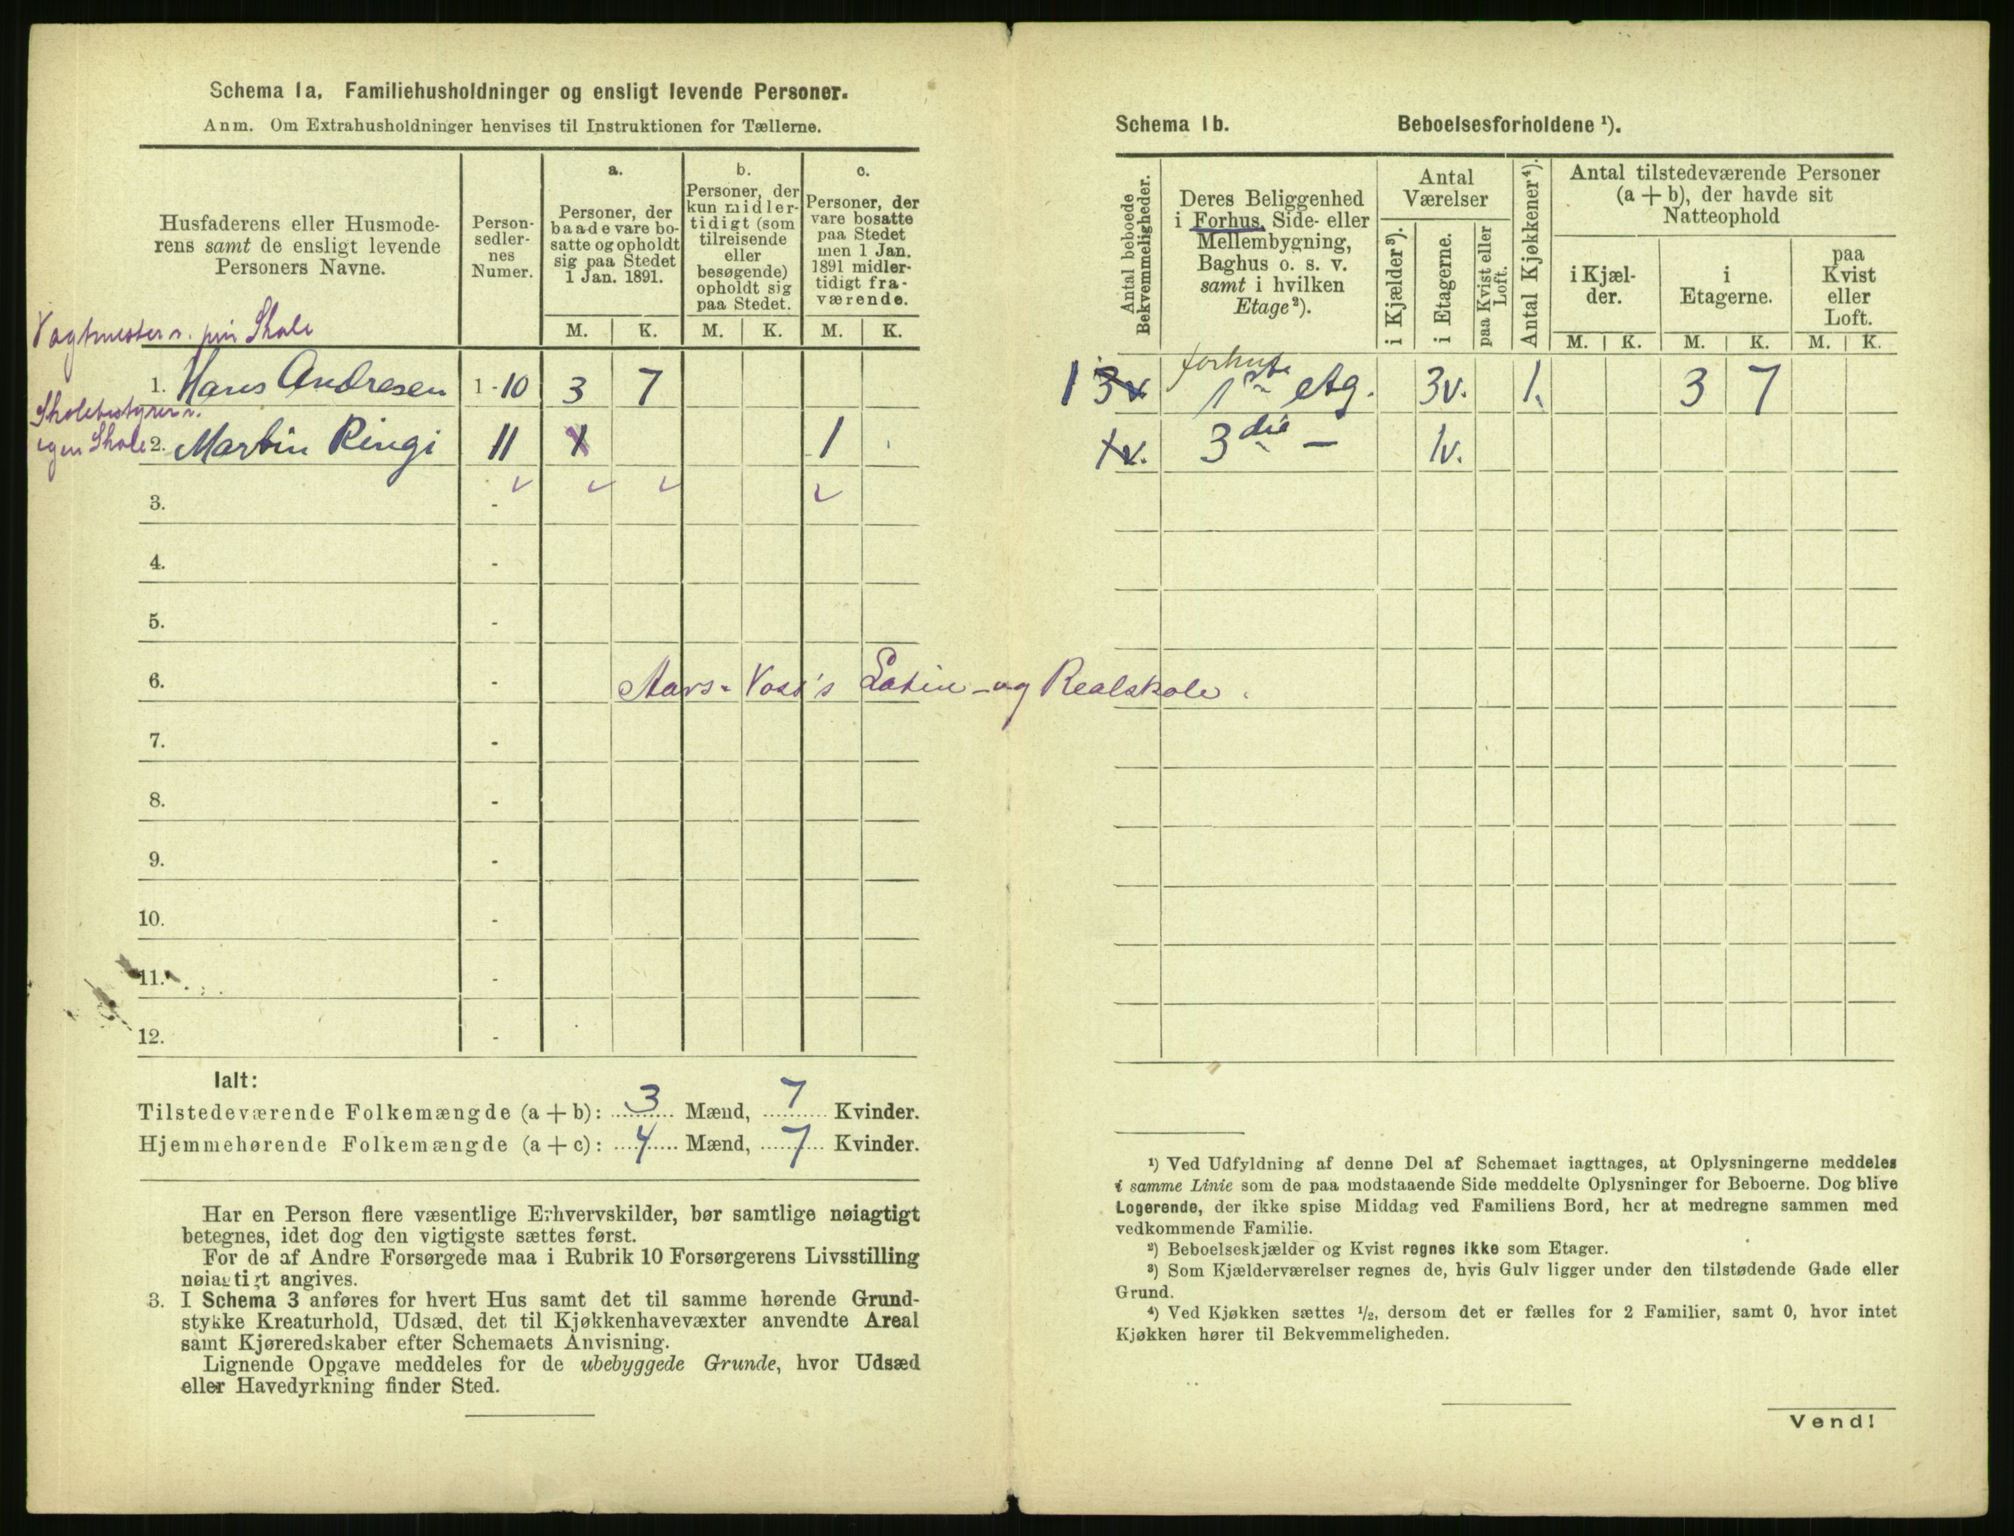 Schema 1a. Familiehusholdninger og ensligt levende Personer.
Anm. Om Extrahusholdninger henvises til Instruktionen for Tællerne.
Husfaderens eller Husmoderens samt de ensligt levende Personers Navne.
Person-sedler-nes Numer.
a.
Personer, der baade vare bosatte og opholdt sig paa Stedet 1 Jan. 1891.
b.
Personer, der kun midlertidigt (som tilreisende eller besøgende) opholdt sig paa Stedet.
c.
Personer, der vare bosatte paa Stedet men 1 Jan. 1891 midlertidigt fraværende.
M. K. M. K. M. K.
Vagtmester v. Skole
1. Hans Andresen 1-10 3 7
Skolebestyrer v.
egen Skole
2. Martin Ringi 11 1 1
3. -
4. -
5. -
6. - Aars & Voss's Latin- og Realskole.
7. -
8. -
9. -
10. -
11. -
12. -
Ialt:
Tilstedeværende Folkemængde (a + b): 3 Mænd, 7 Kvinder.
Hjemmehørende Folkemængde (a + c): 4 Mænd, 7 Kvinder.
Har en Person flere væsentlige Erhvervskilder, bør samtlige nøiagtigt
betegnes, idet dog den vigtigste sættes først.
For de af Andre Forsørgede maa i Rubrik 10 Forsørgerens Livsstilling
nøiagtigt angives.
3. I Schema 3 anføres for hvert Hus samt det til samme hørende Grund-
stykke Kreaturhold, Udsæd, det til Kjøkkenhavevæxter anvendte Areal
samt Kjøreredskaber efter Schemaets Anvisning.
Lignende Opgave meddeles for de ubebyggede Grunde, hvor Udsæd
eller Havedyrkning finder Sted.
Schema 1b. Beboelsesforholdene ¹).
Antal beboede Bekvemmeligheder.
Deres Beliggenhed i Forhus, Side- eller Mellembygning, Baghus o. s. v. samt i hvilken Etage²).
Antal Værelser
i Kjælder³).
i Etagerne.
paa Kvist eller Loft.
Antal Kjøkkener⁴).
Antal tilstedeværende Personer (a + b), der havde sit Natteophold
i Kjælder.
i Etagerne.
paa Kvist eller Loft.
M. K. M. K. M. K.
1 3v. forhus 1ste etg. 3v. 1. 3 7
1v. 3die — 1v.
¹) Ved Udfyldning af denne Del af Schemaet iagttages, at Oplysningerne meddeles
i samme Linie som de paa modstaaende Side meddelte Oplysninger for Beboerne. Dog blive
Logerende, der ikke spise Middag ved Familiens Bord, her at medregne sammen med
vedkommende Familie.
²) Beboelseskjælder og Kvist regnes ikke som Etager.
³) Som Kjælderværelser regnes de, hvis Gulv ligger under den tilstødende Gade eller
Grund.
⁴) Ved Kjøkken sættes ½, dersom det er fælles for 2 Familier, samt 0, hvor intet
Kjøkken hører til Bekvemmeligheden.
Vend!